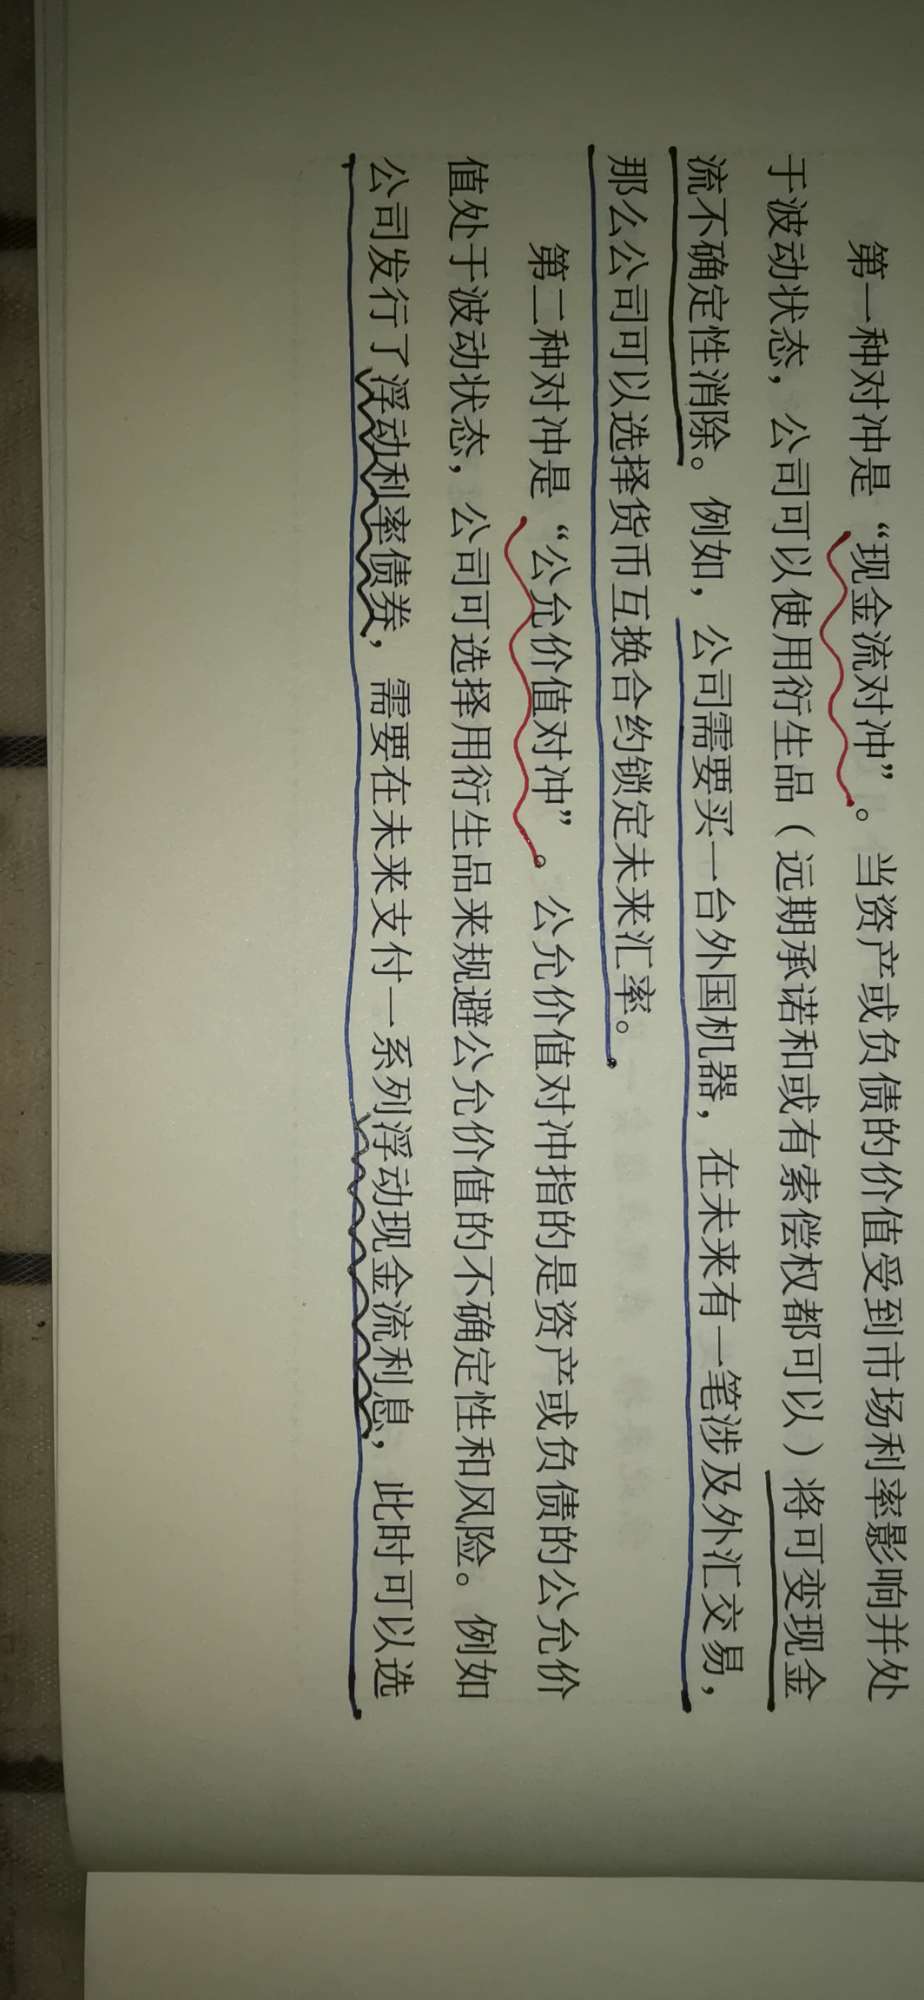 第一种对冲是“现金流对冲”。当资产或负债的价值受到市场利率影响并处
于波动状态，公司可以使用衍生品（远期承诺和或有索偿权都可以）将可变现金
流不确定性消除。例如，公司需要买一台外国机器，在未来有一笔涉及外汇交易，
那么公司可以选择货币互换合约锁定未来汇率。
第二种对冲是“公允价值对冲”。公允价值对冲指的是资产或负债的公允价
值处于波动状态，公司可选择用衍生品来规避公允价值的不确定性和风险。例如
公司发行了浮动利率债券，需要在未来支付一系列浮动现金流利息，此时可以选